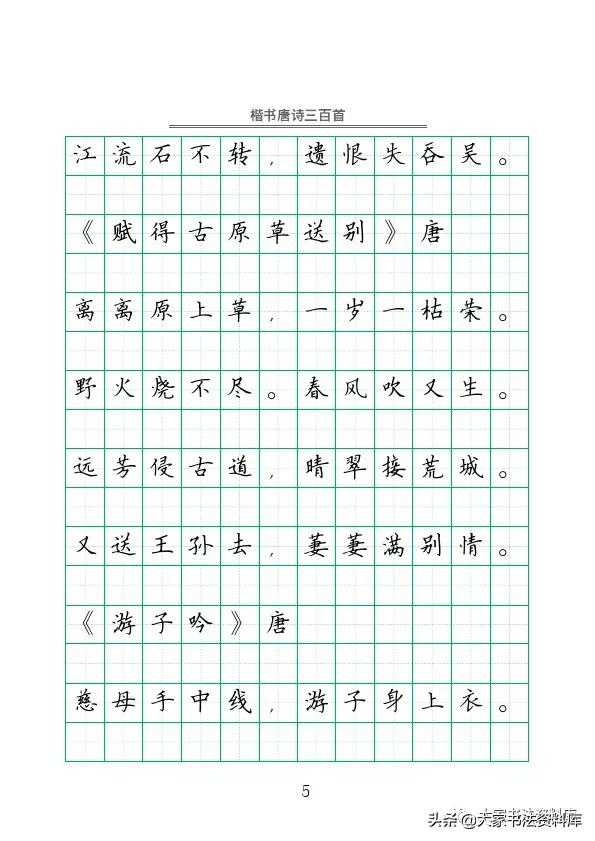 楷书唐诗三百首
江流石不转，遗恨失吞吴。
《赋得古原草送别》唐
离离原上草，一岁一枯荣。
野火烧不尽。春风吹又生。
远芳侵古道，晴翠接荒城。
又送王孙去，萋萋满别情。
《游子吟》唐
慈母手中线，游子身上衣。
5
头条@大家书法资料库